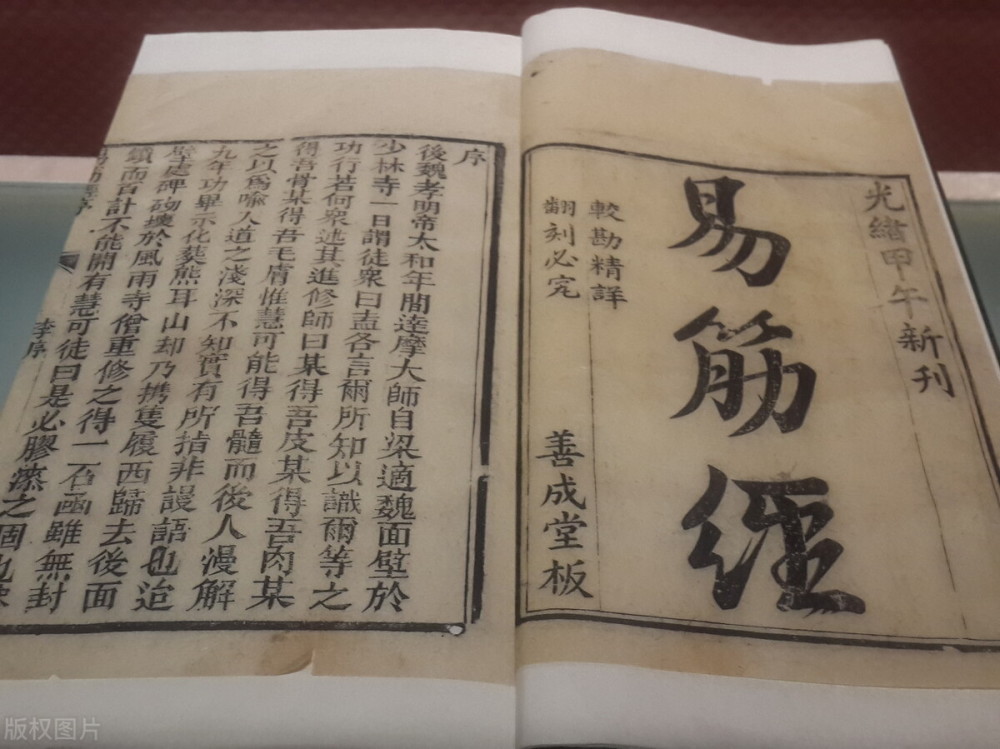 光緒甲午新刊
易筋經
較勘精詳
翻刻必究
善成堂板
序
後魏孝明帝太和年間達摩大師自梁適魏面壁於
少林寺一日謂徒衆曰盍各言爾所知以識爾等之
功行若何衆述其進修師曰某得吾皮某得吾肉某
得吾骨某得吾毛膚惟慧可能得吾髓而後人漫解
之以爲喻入道之淺深不知實有所指非謾語也迨
九年功畢示化葬熊耳山却乃携隻履西歸去後面
壁處碑砌壞於風雨寺僧重修之得一石函雖無封
鎖而百計不能開有慧可徒曰是必膠漆之固也
李序
版权图片